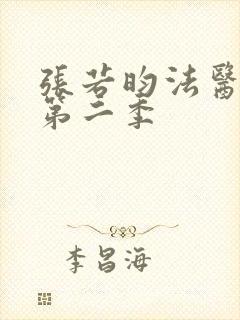 張若昀法醫
第二季
李昌海